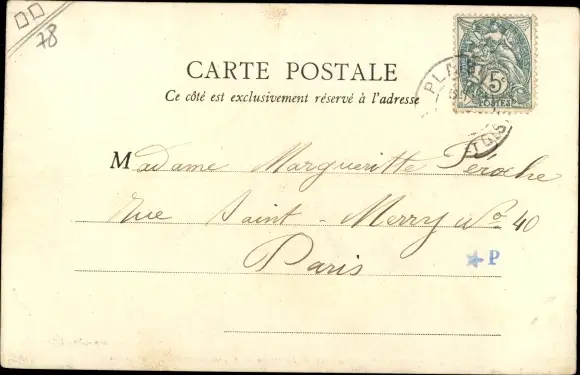 78
CARTE POSTALE
Ce côté est exclusivement réservé à l'adresse
5c
POSTES
Madame Margueritte Péroche
Rue Saint - Merry No. 40
Paris
P